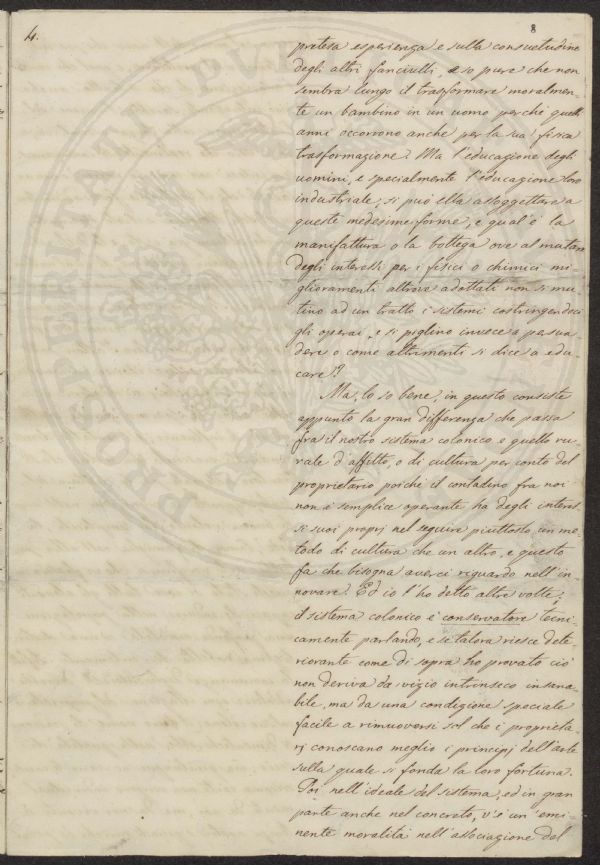 4.
8
pretesa esperienza e sulla consuetudine
degli altri fanciulli, e so pure che non
sembra lungo il trasformare moralmen-
te un bambino in un uomo perchè quelli
anni occorrono anche per la sua fisica
trasformazione? Ma l'educazione degli
uomini, e specialmente l'educazione loro
industriale, si può ella assoggettare a
queste medesime forme, e qual'è la
manifattura o la bottega ove al mutare
degli interessi per i fisici o chimici mi-
glioramenti altrove adottati non si mu-
tino ad un tratto i sistemi costringendoci
gli operai, e si piglino invece a persua-
dere o come altrimenti si dice a edu-
care?
Ma, lo so bene, in questo consiste
appunto la gran differenza che passa
fra il nostro sistema colonico e quello ru-
rale d'affitto, o di cultura per conto del
proprietario poichè il contadino fra noi
non è semplice operante ha degli interes-
si suoi proprj nel seguire piuttosto un me-
todo di cultura che un altro, e questo
fa che bisogna averci riguardo nell'in-
novare. Ed io l'ho detto altre volte,
il sistema colonico è conservatore tecni-
camente parlando, e se talora riesce dete-
riorante come di sopra ho provato ciò
non deriva da vizio intrinseco insana-
bile, ma da una condizione speciale
facile a rimuoversi sol che i proprieta-
rj conoscano meglio i principj dell'arte
sulla quale si fonda la loro fortuna.
Poi nell'ideale del sistema, ed in gran
parte anche nel concreto, v'è un'emi-
nente moralità nell'associazione del
PROSPERI
PUR